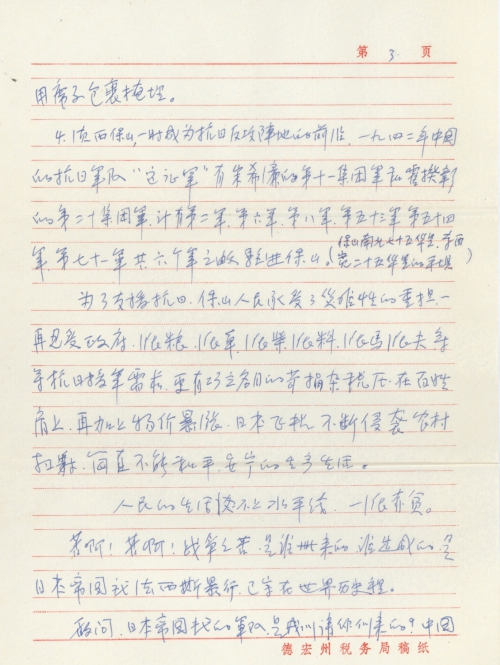 第 3 页
用席子包裹掩埋。
4、滇西保山一时成为抗日反攻阵地的前沿，一九四二年中国
的抗日军队“远征军”有宋希濂的第十一集团军和霍揆彰
的第二十集团军，计有第二军、第六军、第八军、第五十三军、第五十四
军、第七十一军共六个军之故驻进保山。（保山南北七十五华里，东西
宽二十五华里的平坝）
为了支援抗日，保山人民承受了灾难性的重担，一
再忍受政府，派粮、派草、派柴、派料、派马、派夫等
等抗日援军需求，更有巧立名目的苛捐杂税压在百姓
肩上，再加上物价暴涨，日本飞机不断侵袭农村
扫射，简直不能和平、安宁的生产生活。
人民的生活 不上水平线，一派赤贫。
苦啊！苦啊！战争之苦，是谁 来的，谁造成的，是
日本帝国 法西斯暴行，已 在世界历史 。
敬问，日本帝国 的军队，是我们请你们来的？中国
德宏州税务局稿纸